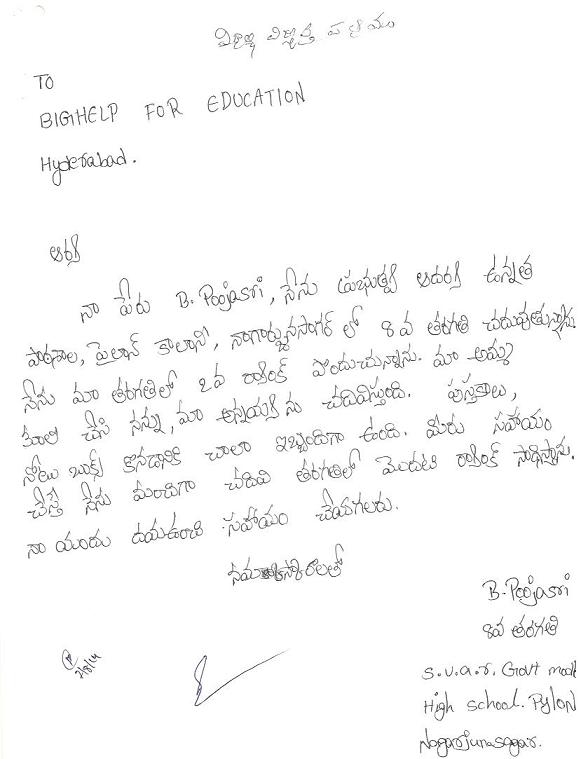 విద్యా విజ్ఞప్తి పత్రము
TO
BIGHELP FOR EDUCATION
Hyderabad.
ఆర్య
నా పేరు B. Poojasri, నేను ప్రభుత్వ ఆదర్శ ఉన్నత
పాఠశాల, పైలాన్ కాలాని, నాగార్జునసాగర్ లో 8 వ తరగతి చదువుతున్నాను
నేను మా తరగతిలో 2వ ర్యాంక్ పొందుచున్నాను. మా అమ్మ
కూలి చేసి నన్ను, మా అన్నయ్యను చదివిస్తుంది. పుస్తకాలు,
నోటు బుక్స్ కొనడానికి చాలా ఇబ్బందిగా ఉంది. మీరు సహాయం
చేస్తే నేను మంచిగా చదివి తరగతిలో మొదటి ర్యాంక్ సాధిస్తాను.
నా యందు దయఉంచి సహాయం చేయగలరు.
నమస్కారాలతో
B. Poojasri
8వ తరగతి
S.V.A.R. Govt model
High school. Pylon
Nagarjunasagar.